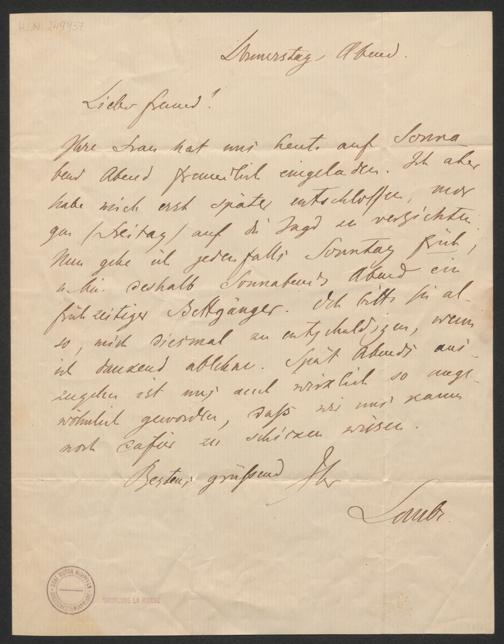 H.I.N. 249437
Donnerstag Abend.
Lieber Freund!
Ihre Frau hat uns heute auf Sonna
bend Abend freundlich eingeladen. Ich aber
habe mich erst später entschlossen, mor
gen (Freitag) auf die Jagd zu verzichten.
Nun gehe ich jedenfalls Sonntag früh,
u. bin deshalb Sonnabends Abend ein
frühzeitiger Bettgänger. Ich bitte Sie al-
so, mich diesmal zu entschuldigen, wenn
ich dankend ablehne. Spät Abends aus-
zugehen ist uns auch wirklich so unge-
wöhnlich geworden, daß wir uns kaum
noch dafür zu schicken wissen.
Bestens grüßend Ihr
Laube.